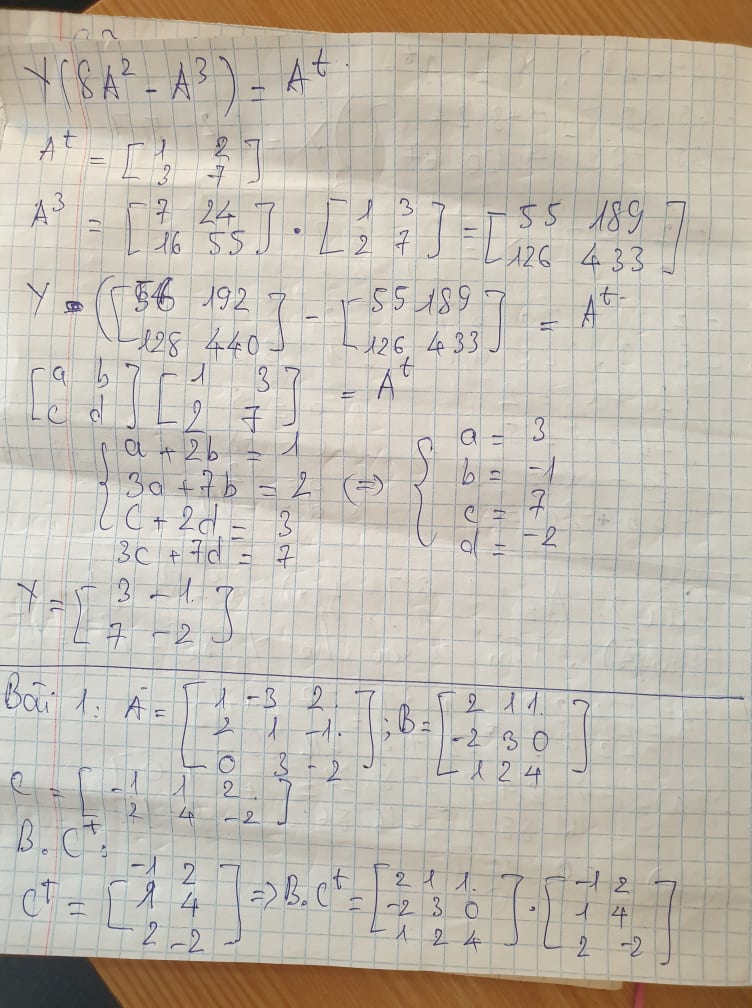 Y(8A² - A³) = Aᵗ
Aᵗ = [1 2
3 7]
A³ = [7 24
16 55] . [1 3
2 7] = [55 189
126 433]
Y ([56 192
128 440] - [55 189
126 433]) = Aᵗ
[a b
c d] [1 3
2 7] = Aᵗ
{ a + 2b = 1
3a + 7b = 2
c + 2d = 3
3c + 7d = 7
(=> { a = 3
b = -1
c = 7
d = -2
Y = [3 -1
7 -2]
Bài 1: A = [1 -3 2
2 1 -1
0 3 -2] ; B = [2 1 1
-2 3 0
1 2 4]
C = [-1 1 2
2 4 -2]
B.Cᵗ:
Cᵗ = [-1 2
1 4
2 -2] => B.Cᵗ = [2 1 1
-2 3 0
1 2 4] . [-1 2
1 4
2 -2]